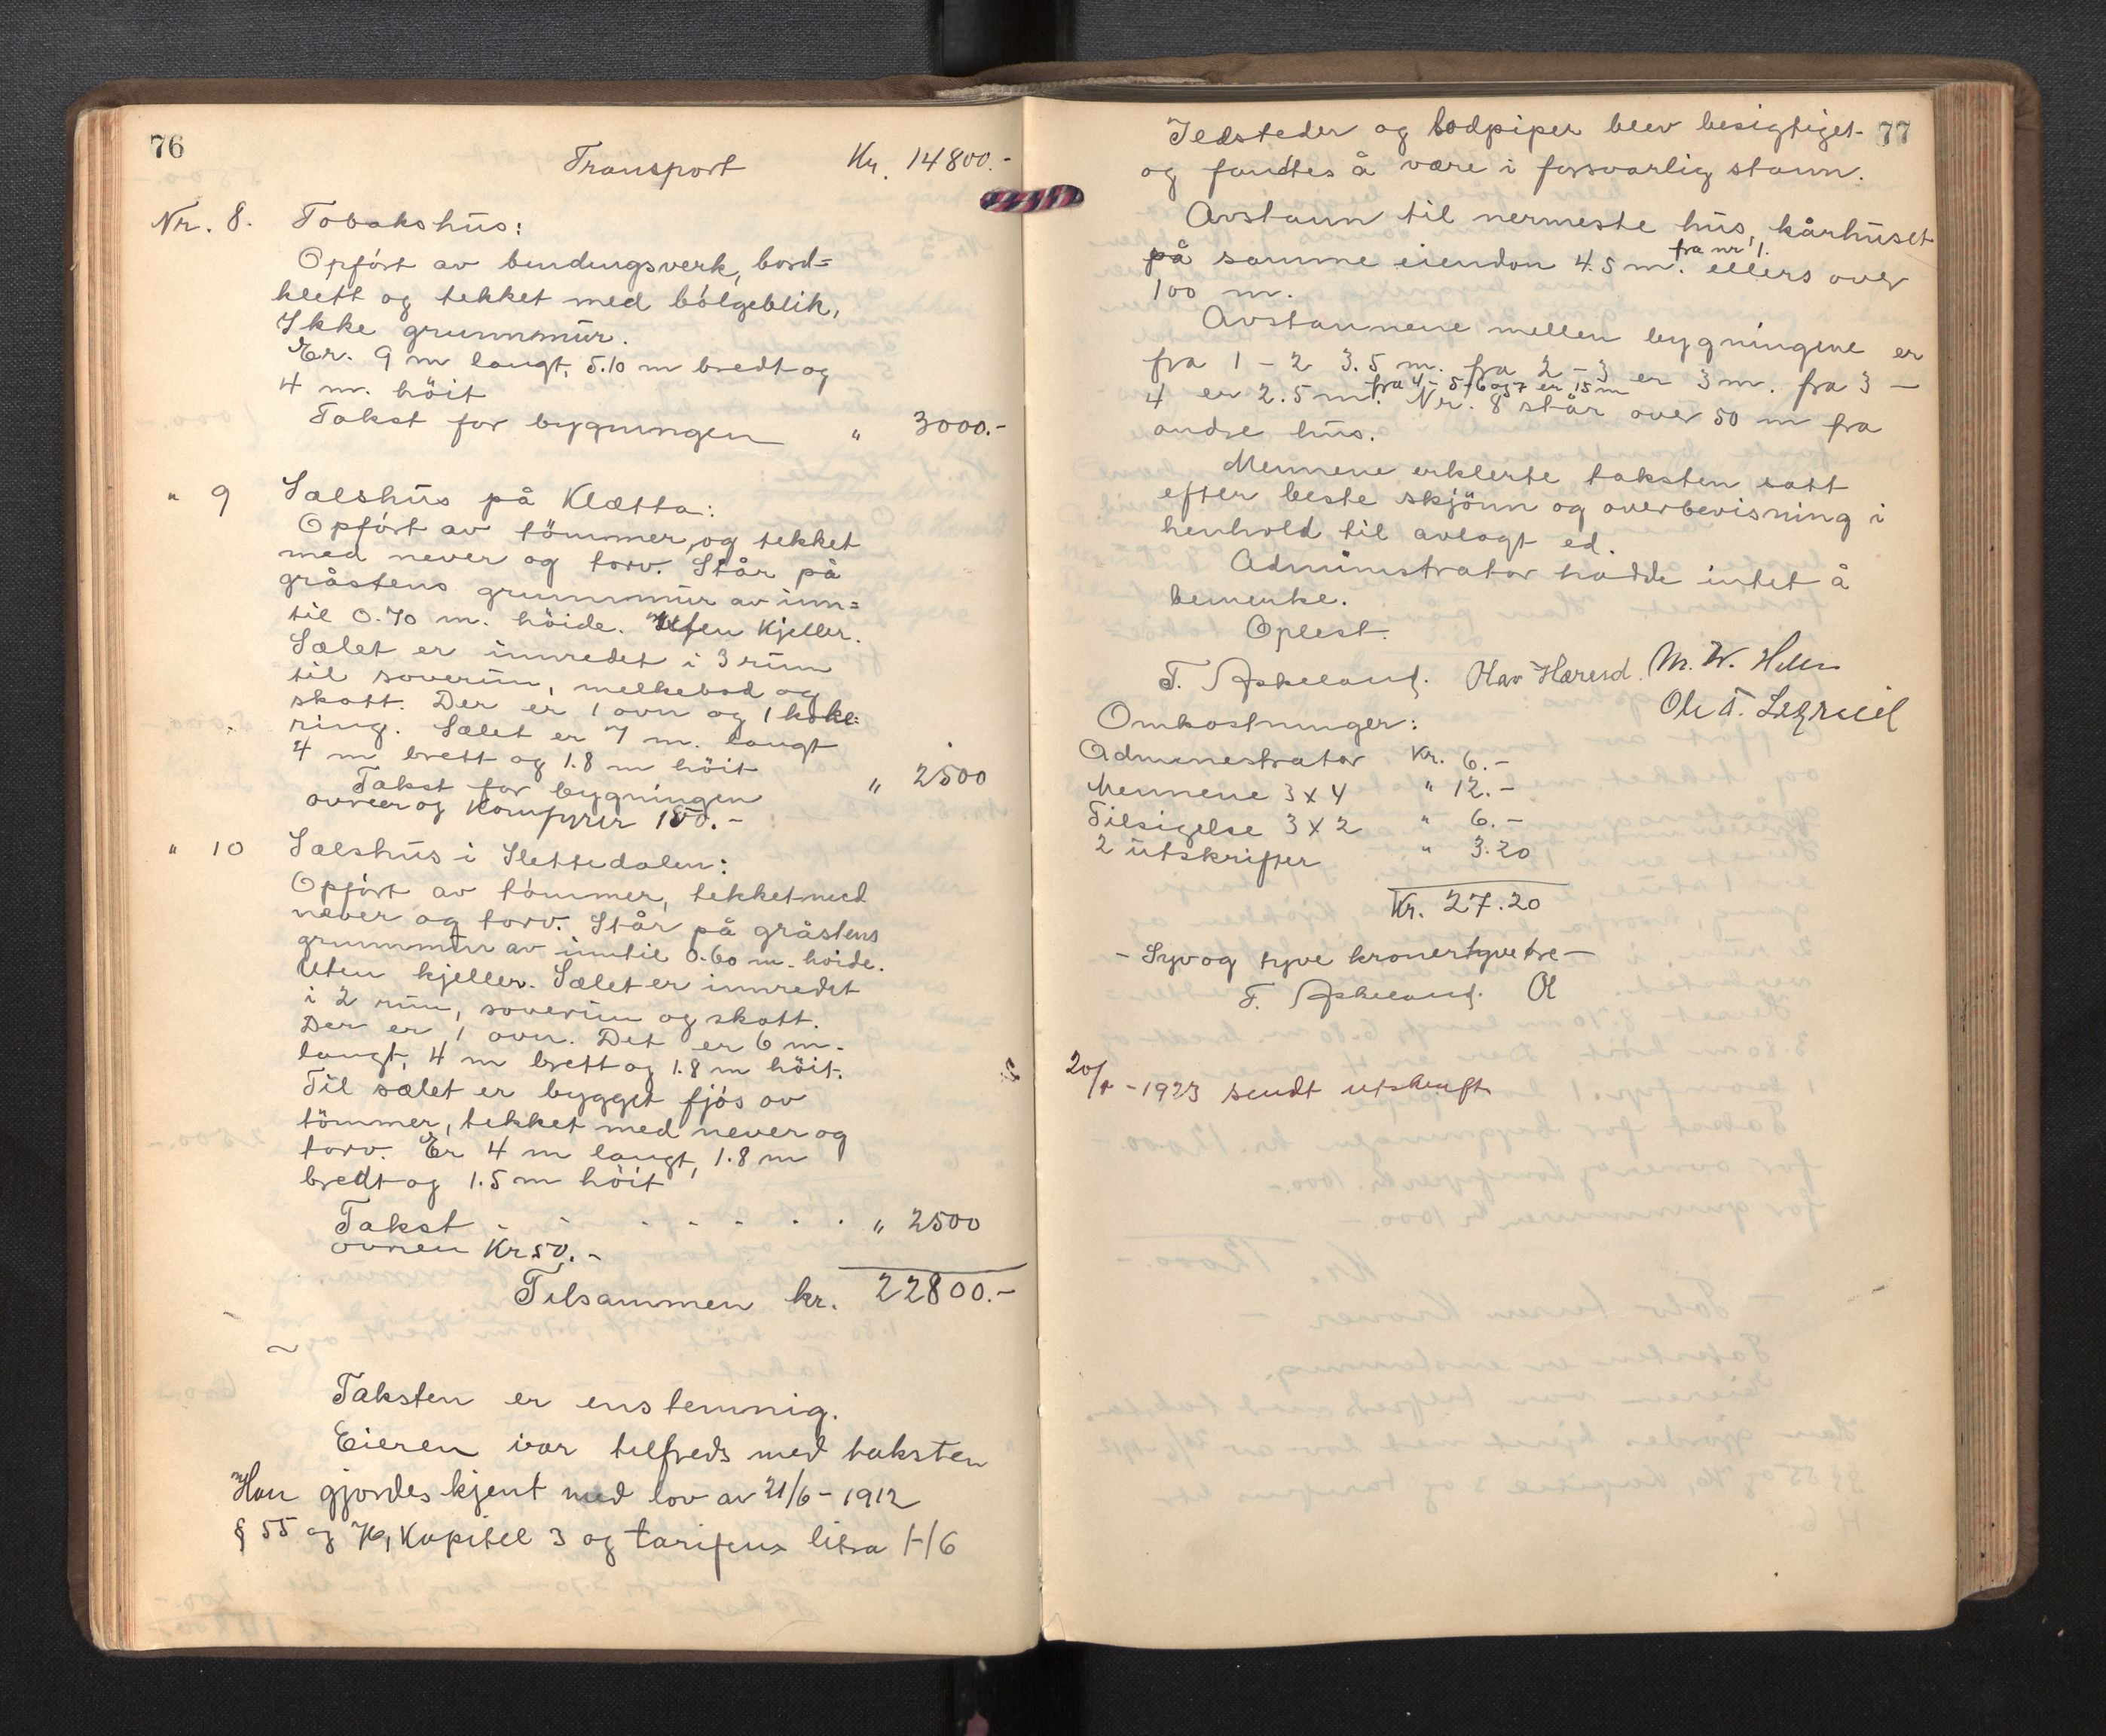 76
Transport Kr. 14800.-
Nr. 8. Tobakshus:
Opført av bindingsverk, bord=
klett og tekket med bølgeblik,
Ikke grunnmur.
Er. 9 m langt, 5.10 m bredt og
4 m. höit
Takst for bygningen " 3000.-
" 9 Sælshus på Klætta:
Opført av tömmer, og tekket
med never og torv. Står på
gråstens grunnmur av inn=
til 0.70 m. höide. Uten Kjeller.
Sælet er innredet i 3 rum
til soverum, melkebod og
skott. Der er 1 ovn og 1 koke=
ring. Sælet er 7 m. langt
4 m brett og 1.8 m höit
Takst for bygningen " 2500
ovner og Komfyrer 150.-
" 10 Sælshus i Slettedalen:
Opført av tömmer, tekket med
never og torv. Står på gråstens
grunnmur av inntil 0.60 m. höide.
Uten kjeller. Sælet er innredet
i 2 rum, soverum og skott.
Der er 1 ovn. Det er 6 m.
langt, 4 m brett og 1.8 m höit.
Til sælet er bygget fjös av
tömmer, tekket med never og
torv. Er 4 m langt, 1.8 m
bredt og 1.5 m höit
Takst - - - - - - . . " 2500
ovnen Kr 50.-
Tilsammen kr. 22800.-
Taksten er enstemmig.
Eieren var tilfreds med taksten
Han gjordes kjent med lov av 21/6-1912
§ 55 og 76, Kapitel 3 og tarifens litra H6
77
Ildsteder og lodpiper blev besigtiget
og fandtes å være i forsvarlig stann.
Avstann til nermeste hus, kårhuset
fra nr 1.
på samme eiendon 4.5 m. ellers over
100 m.
Avstannene mellem bygningene er
fra 1 - 2 3.5 m. fra 2 - 3 er 3 m. fra 3 -
fra 4 - 5-6 og 7 er 15 m
4 er 2.5 m. Nr. 8 står over 50 m fra
andre hus.
Mennene erklerte taksten satt
efter beste skjönn og overbevisning i
henhold til avlagt ed.
Administrator hadde intet å
bemerke.
Oplest.
T. Askeland. Olav M. W.
Ole T.
Omkostninger:
Administrator Kr. 6.-
Mennene 3 x 4 " 12.-
Tilsigelse 3 x 2 " 6.-
2 utskrifter " 3.20
Kr. 27.20
- Syv og tyve kroner tyve øre -
T. Askeland.
-1923 sendt utskrift